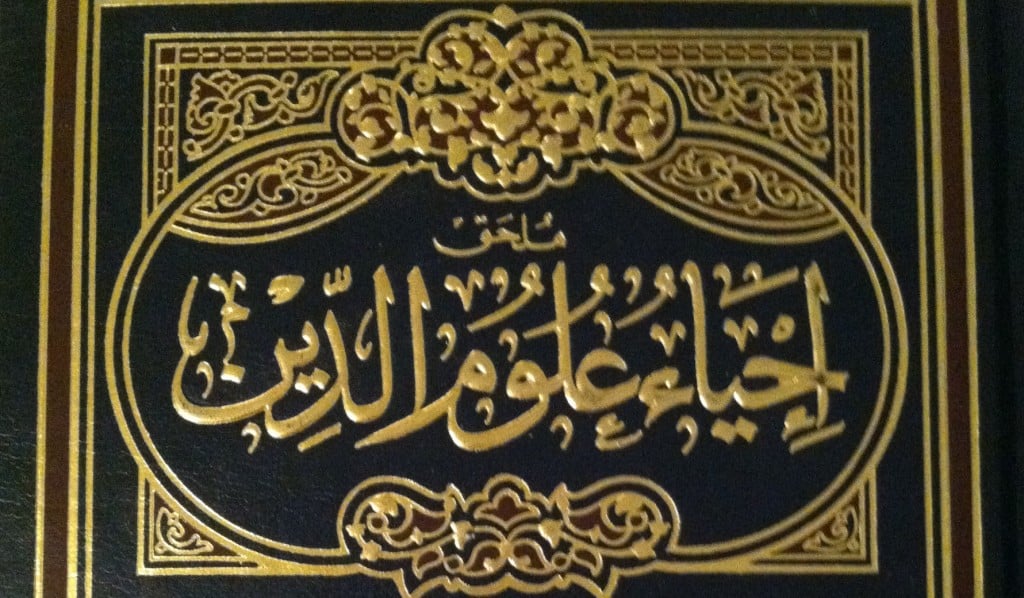 مُلحَق
إِحْيَاءُ عُلُومُ الدِّيْن